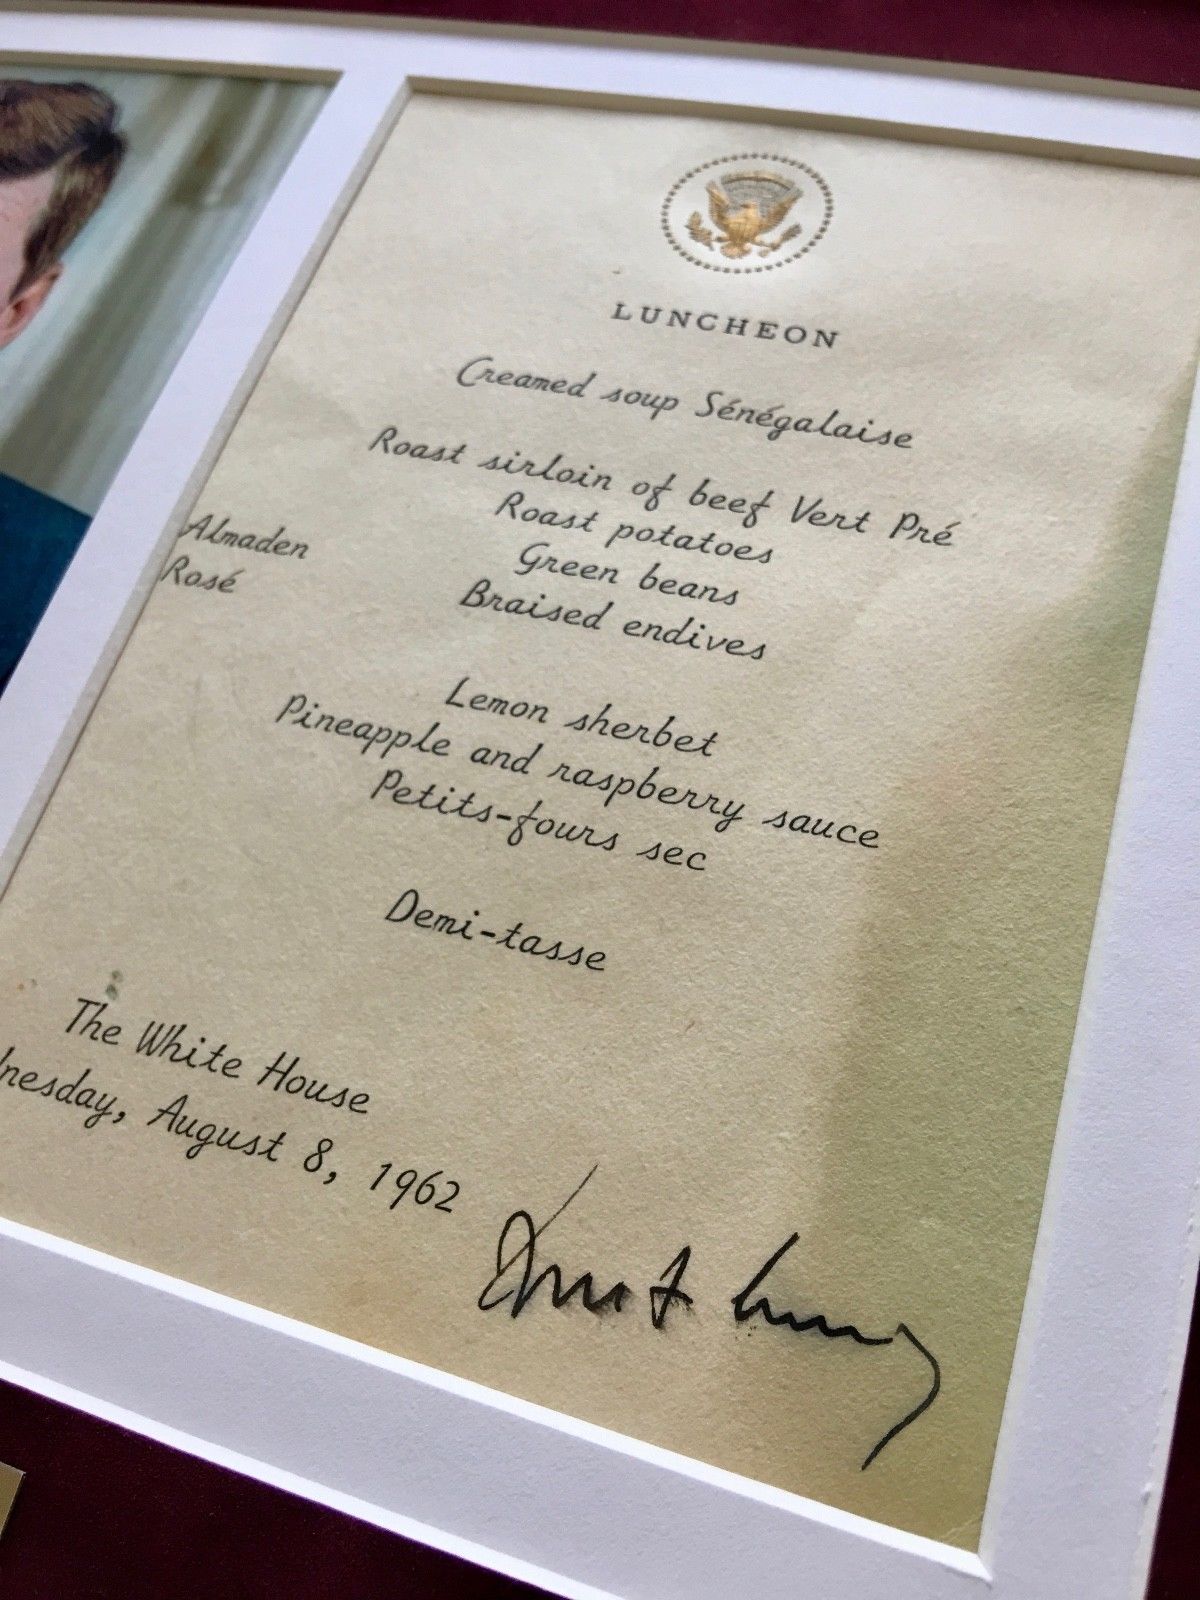 LUNCHEON
Creamed soup Sénégalaise
Roast sirloin of beef Vert Pré
Roast potatoes
Almaden
Green beans
Rosé
Braised endives
Lemon sherbet
Pineapple and raspberry sauce
Petits-fours sec
Demi-tasse
The White House
nesday, August 8, 1962